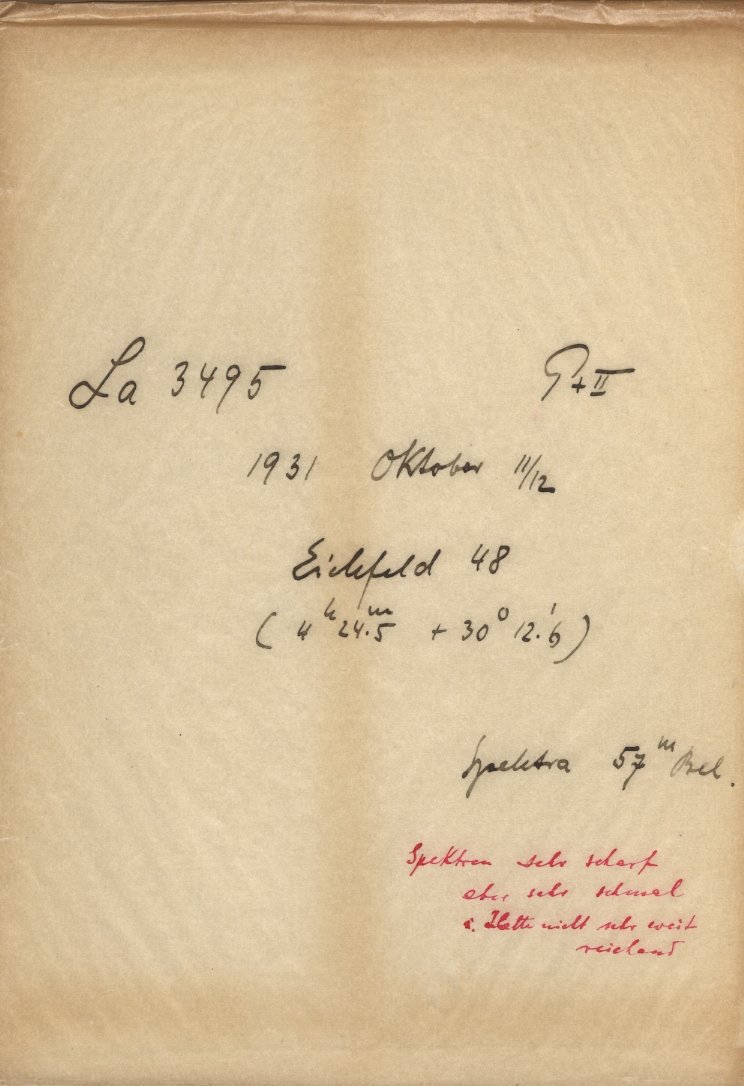 La 3495 P+II
1931 Oktober 11/12
Eichfeld 48
( 4ʰ 24ᵐ.5 + 30° 12.'6 )
Spektra 57ᵐ Bel.
Spektren sehr scharf
aber sehr schmal
nicht sehr weit
reichend